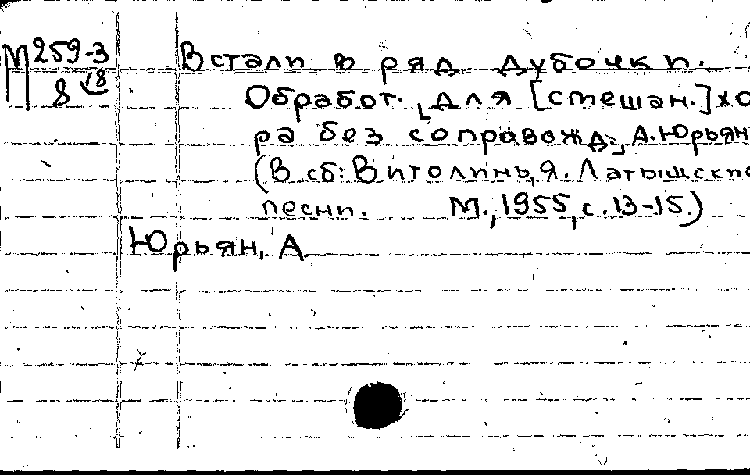 М 259-3 Встали в ряд дубочки.
8 18 Обработ. для [смешан.] хо
ра без сопровожд., А. Юрьян
(В сб: Витолинь, Я. Латышские
песни. М., 1955, с. 13-15.)
Юрьян, А